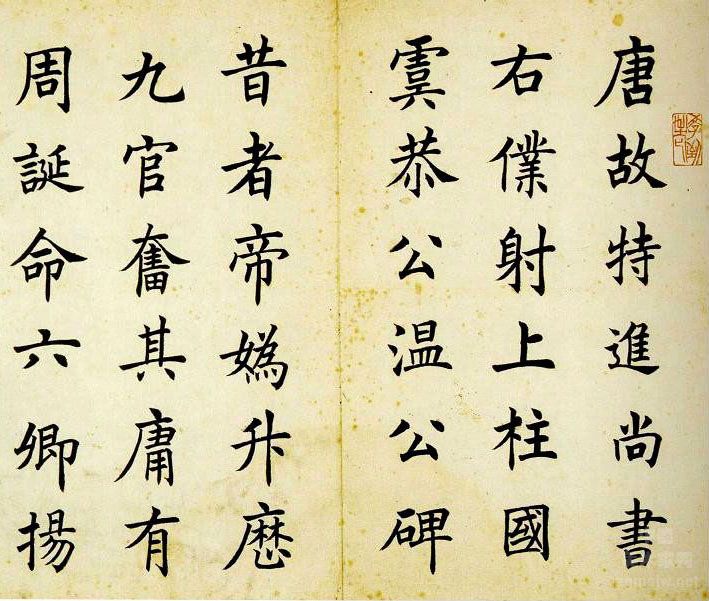 唐故特進尚書
右僕射上柱國
虞恭公温公碑
昔者帝媯升歷
九官奮其庸有
周誕命六卿揚